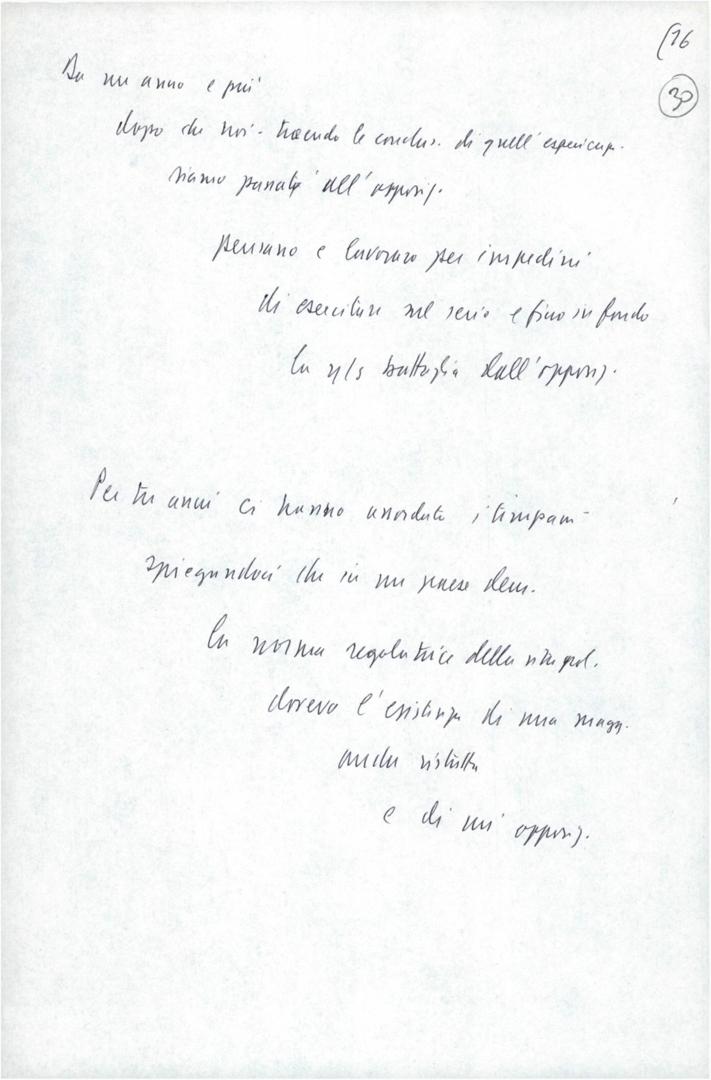 (76
30
Da un anno e più
dopo che noi - traendo le conclus. di quell'esperienza -
siamo passati all'opposiz.
pensano e lavorano per impedirci
di esercitare sul serio e fino in fondo
la n/s battaglia dall'opposiz.
Per tre anni ci hanno assordato i timpani
spiegandoci che in un paese dem.
la norma regolatrice della vita pol.
doveva l'esistenza di una magg.
anche ristretta
e di un'opposiz.